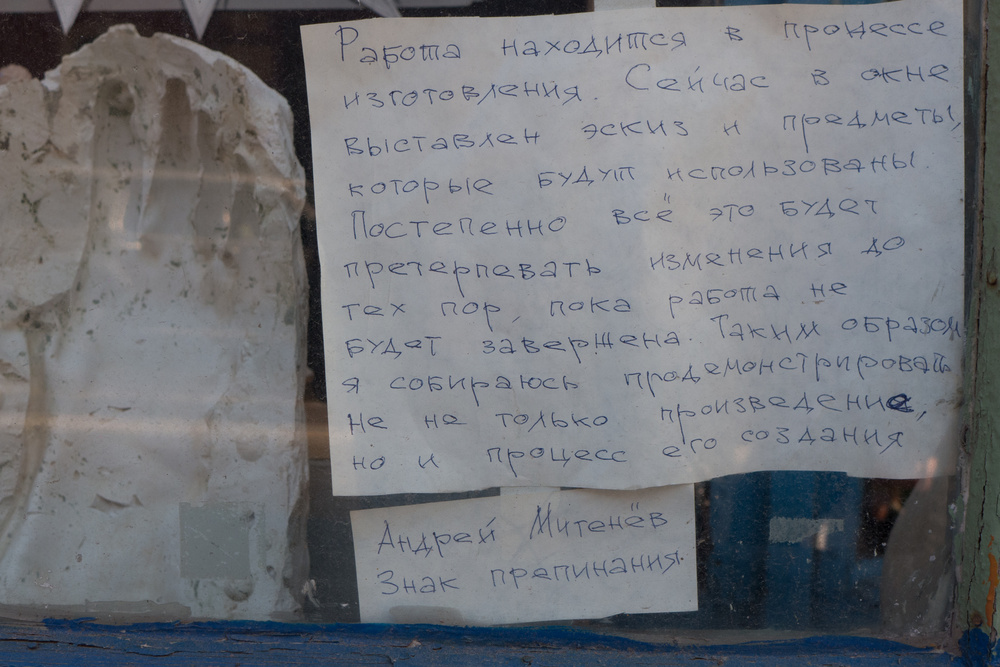 Работа находится в процессе
изготовления. Сейчас в окне
выставлен эскиз и предметы,
которые будут использованы.
Постепенно всё это будет
претерпевать изменения до
тех пор, пока работа не
будет завершена. Таким образом
я собираюсь продемонстрировать
не не только произведение,
но и процесс его создания
Андрей Митенёв
Знак препинания.